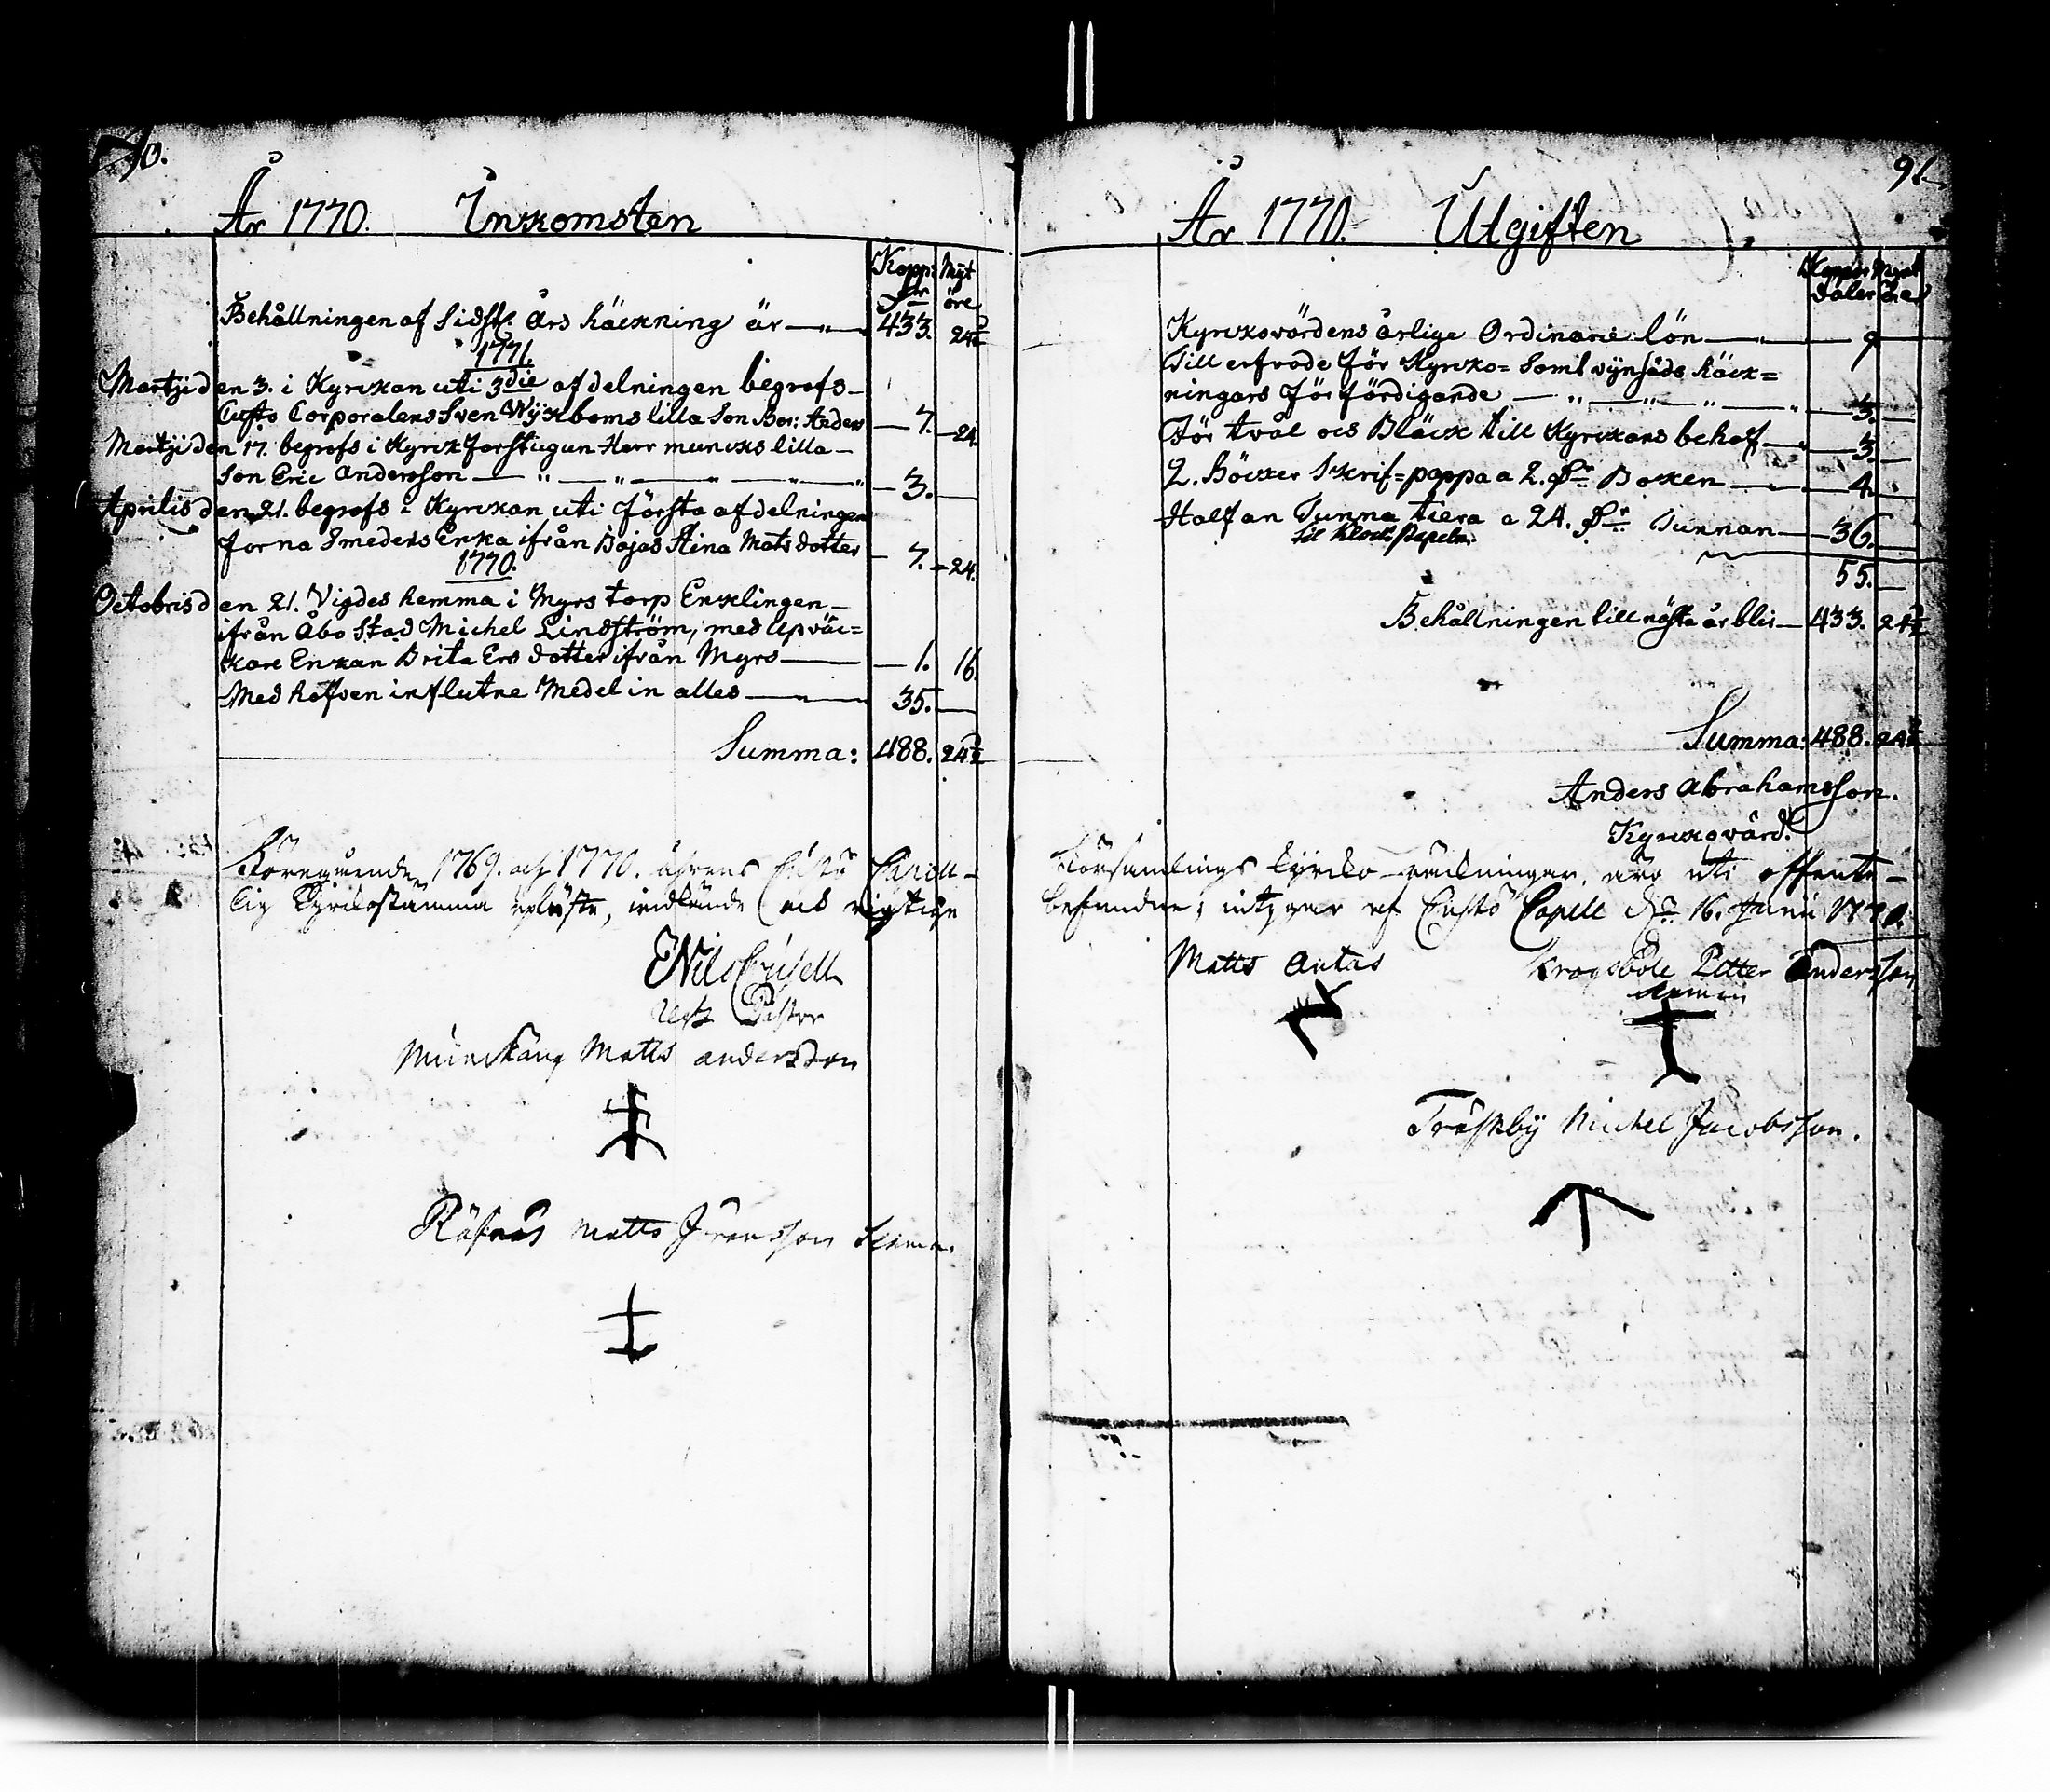 90.
År 1770. Inkomsten
Kopp: Mÿt
Dr öre
Behållningen af Sidst. års Räckning är — 433. 24 1/2
1771.
Martji den 3. i Kyrckan uti 3die afdelningen begrofs —
Custo Corporalens Sven Wijkboms lilla Son Bor: Anders — 7. — 24.
Martji den 17. begrofs i Kyrck forstugun Herr muncks lilla —
Son Eric Andersson — 3. —
Aprilis den 21. begrofs i Kyrckan uti Första afdelningen
forna Smedens Enka ifrån Bojas Aina Mats dotter — 7. — 24.
1770.
Octobris den 21. Vigdes hemma i Myrs torp Encklingen —
ifrån Åbo Stad Michel Lindström, med Upväc=
kare Enkan Brita Ers dotter ifrån Myrs — 1. 16.
Med hofven influtne Medel in alles — 35. —
Summa: 488. 24 1/2
Föregående 1769. och 1770. åhrens Custö Capell —
lig Kyrckostämma uplÿste, och rigtige
Nils
Pastor
Matts andersson
Matts
91.
År 1770. Utgiften
Koppar Mynt
daler öre
Kyrckovärdens årlige Ordinarie lön — 9
Till erfrade för Kyrcko= Samt vijnsäds Räck=
ningars Förfärdigande — 3. —
För tvål ock Bläck till Kyrckans behof — 3. —
2. Böcker Skrif=pappa a 2. Dr Boken — 4.
Half an Tunna tiera a 24. Dr Tunnan — 36. —
til Klock Stapeln.
55. —
Behållningen till nästa år blir — 433. 24 1/2
Summa: 488. 24 1/2
Anders Abrahamsson.
Kyrckovärd.
Församlings Kyrcko-räckningar, äro uti offente —
befundne; af Custö Capell d. 16. Junii
Matts Antas
Krogsböle Petter Andersson
Träskbÿ Michel Jacobsson.